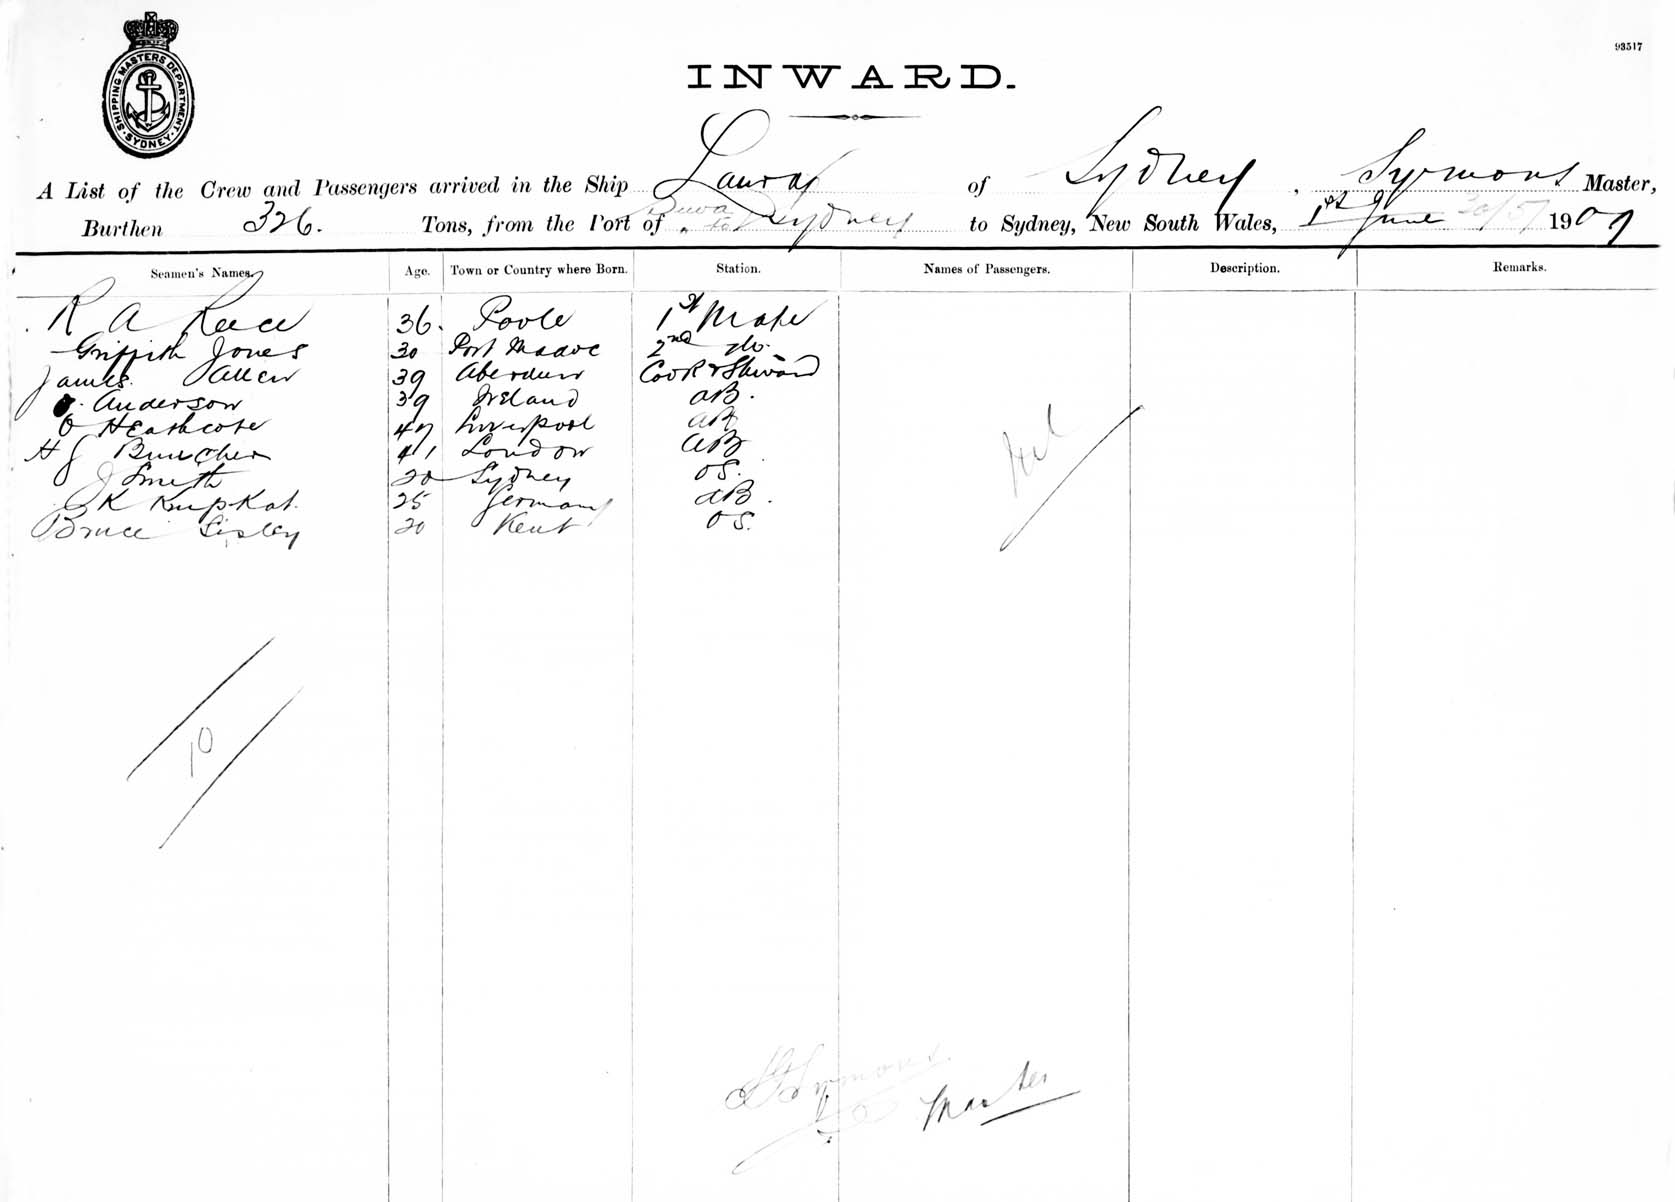 93517
SHIPPING MASTERS DEPARTMENT. SYDNEY
INWARD.
A List of the Crew and Passengers arrived in the Ship Laura of Sydney, Symons Master,
Burthen 326. Tons, from the Port of Suva to Sydney to Sydney, New South Wales, 1st June 30/5/ 1907
Seamen's Names. Age. Town or Country where Born. Station. Names of Passengers. Description. Remarks.
R A Reece 36. Poole 1st Mate
Griffith Jones 30 Port Madoc 2nd do.
James Allen 39 Aberdeen Cook & Steward
Anderson 39 Ireland AB.
O Heathcote 47 Liverpool AB
H J Buncher 41 London AB
J Smith 20 Sydney OS.
K Krupkat. 25 Germany AB.
Bruce Sisley 20 Kent OS.
Nil
10
Symons
Master